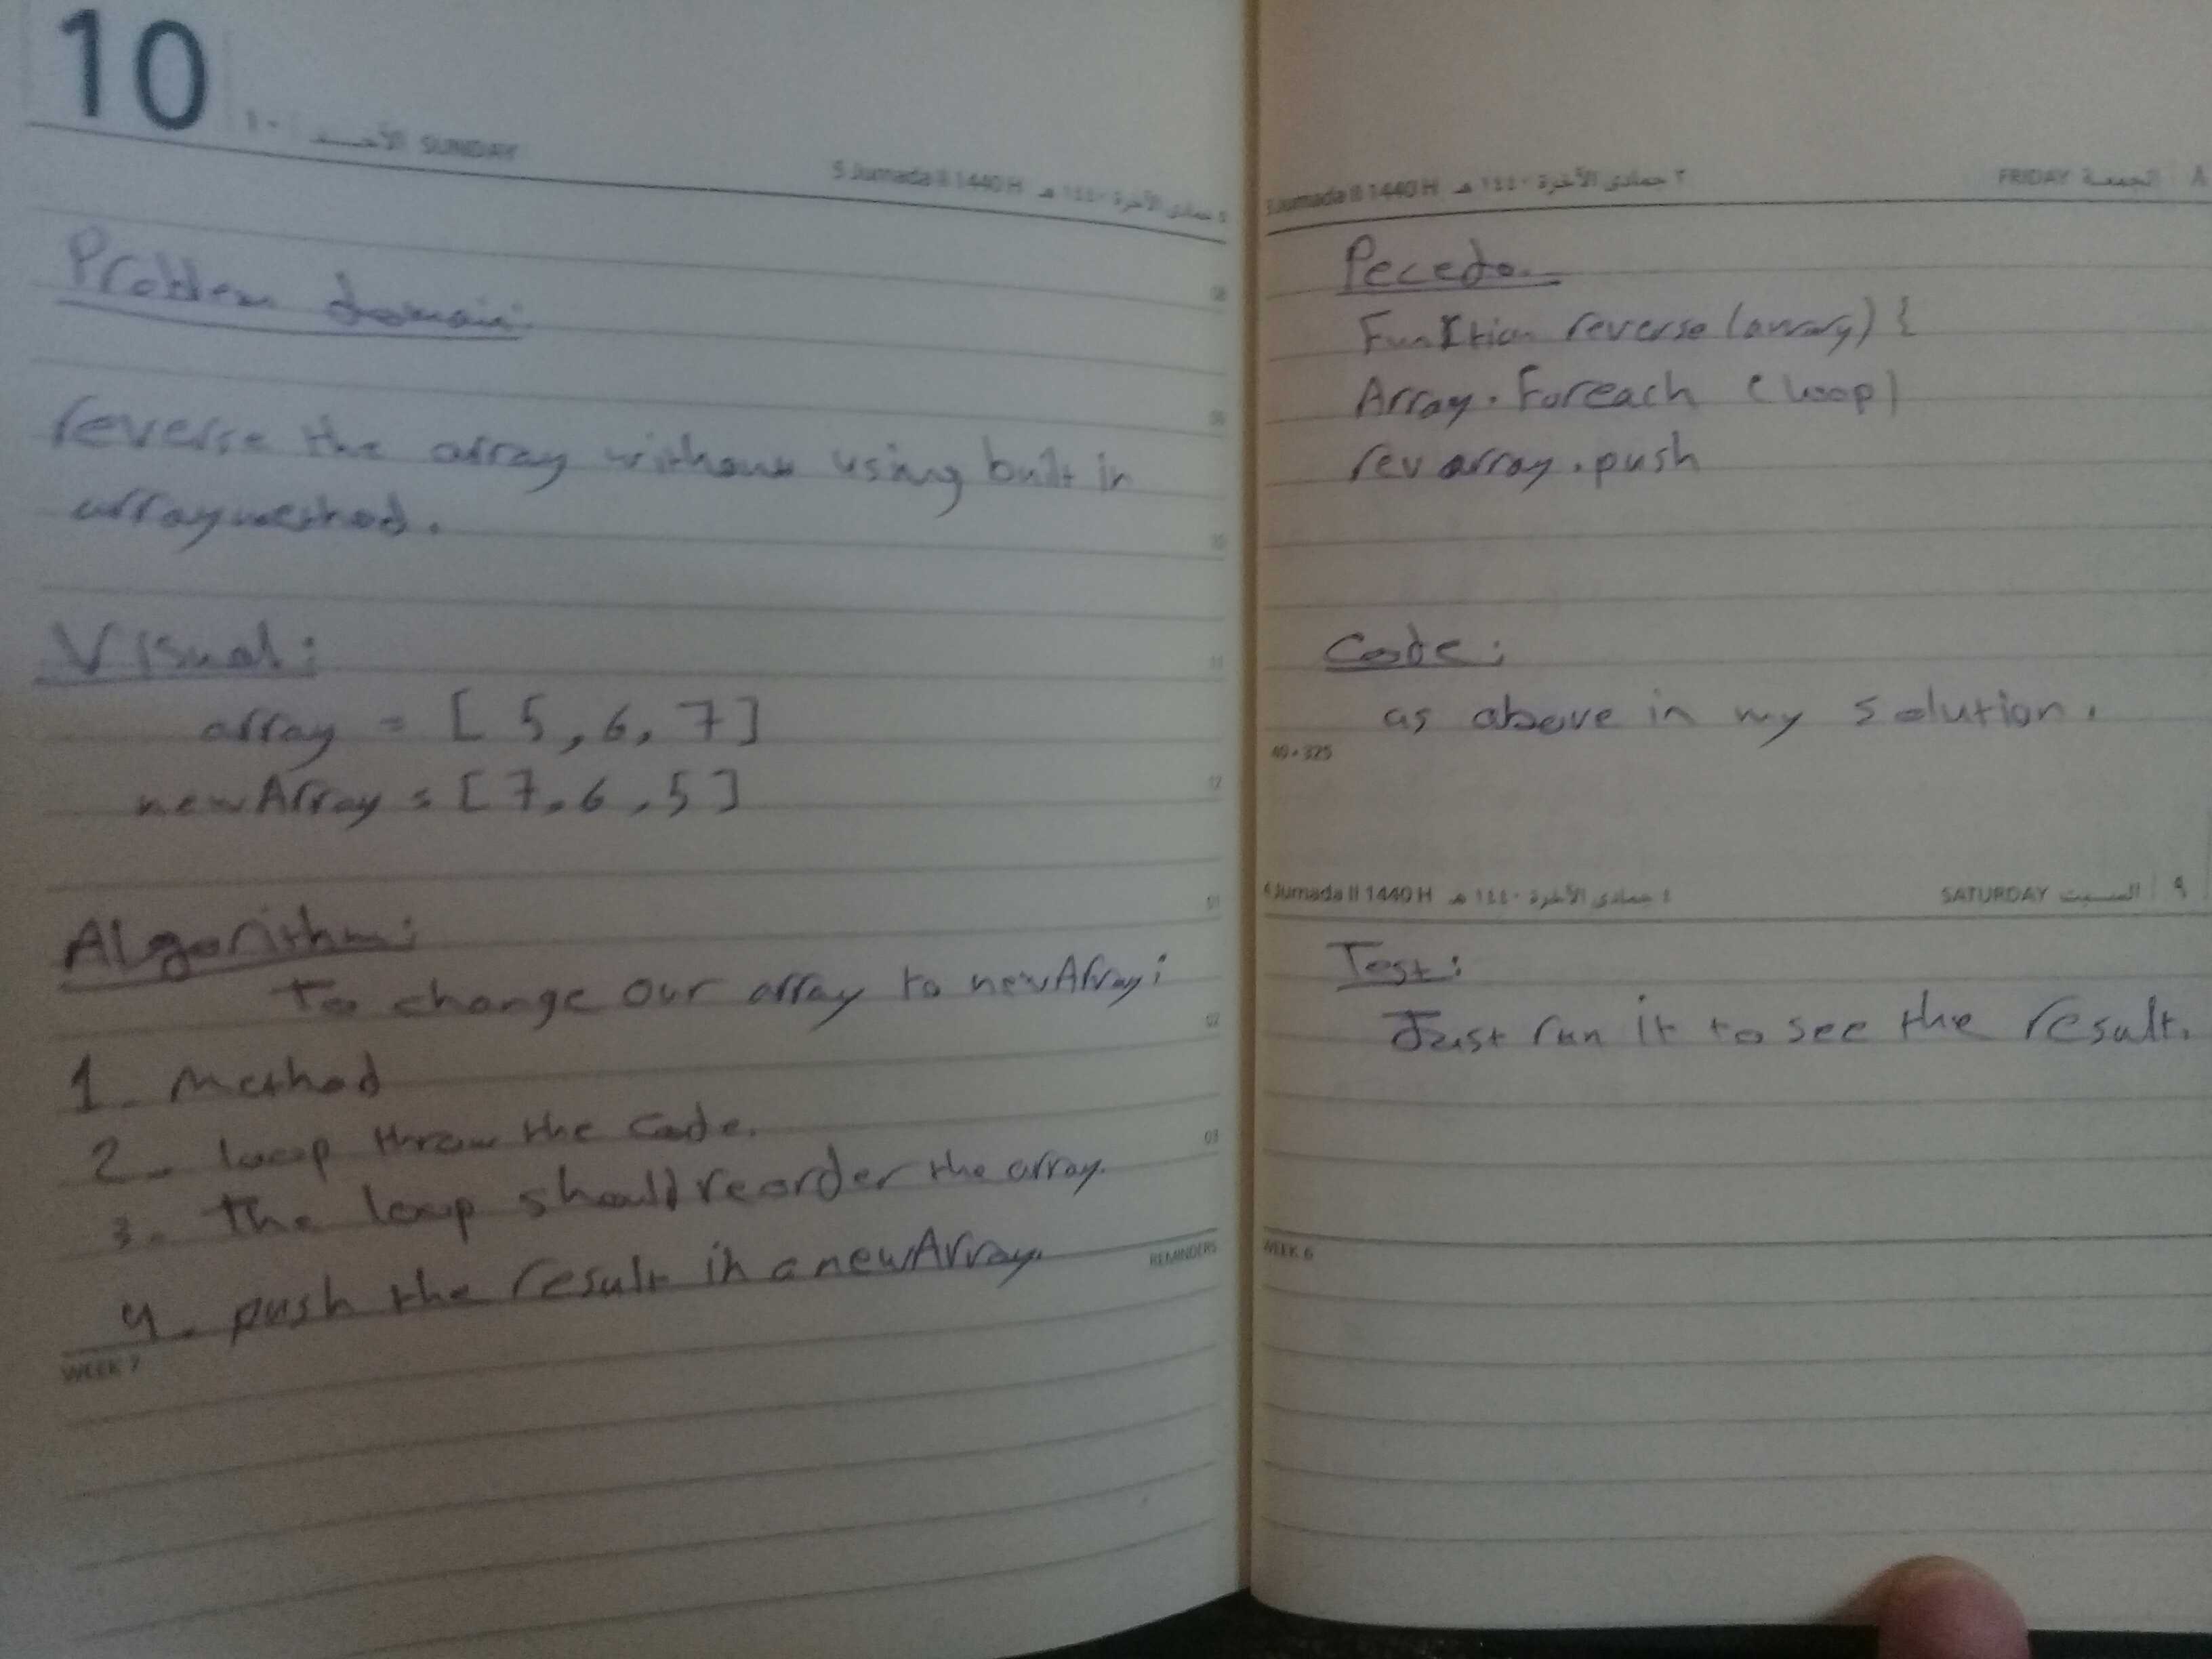 10
١٠ الأحــــد SUNDAY
5 Jumada II 1440 H ٥ جمادى الآخرة ١٤٤٠ هـ
Problem domain:
08
reverse the array without using built in
09
arraymethod.
10
Visual:
11
array = [ 5, 6, 7 ]
newArray = [ 7, 6, 5 ]
12
Algorithm:
01
To change our array to newArray:
02
1- Method
2- loop throw the code.
03
3- The loop should reorder the array.
4- push the result in a newArray.
REMINDERS
WEEK 7
3 Jumada II 1440 H ٣ جمادى الآخرة ١٤٤٠ هـ
FRIDAY الجمعة ٨
Pecedo
Function reverse (array) {
Array. Foreach (loop)
rev array.push
Code:
as above in my solution.
40 - 325
4 Jumada II 1440 H ٤ جمادى الآخرة ١٤٤٠ هـ
SATURDAY السبت ٩
Test:
Just run it to see the result.
WEEK 6